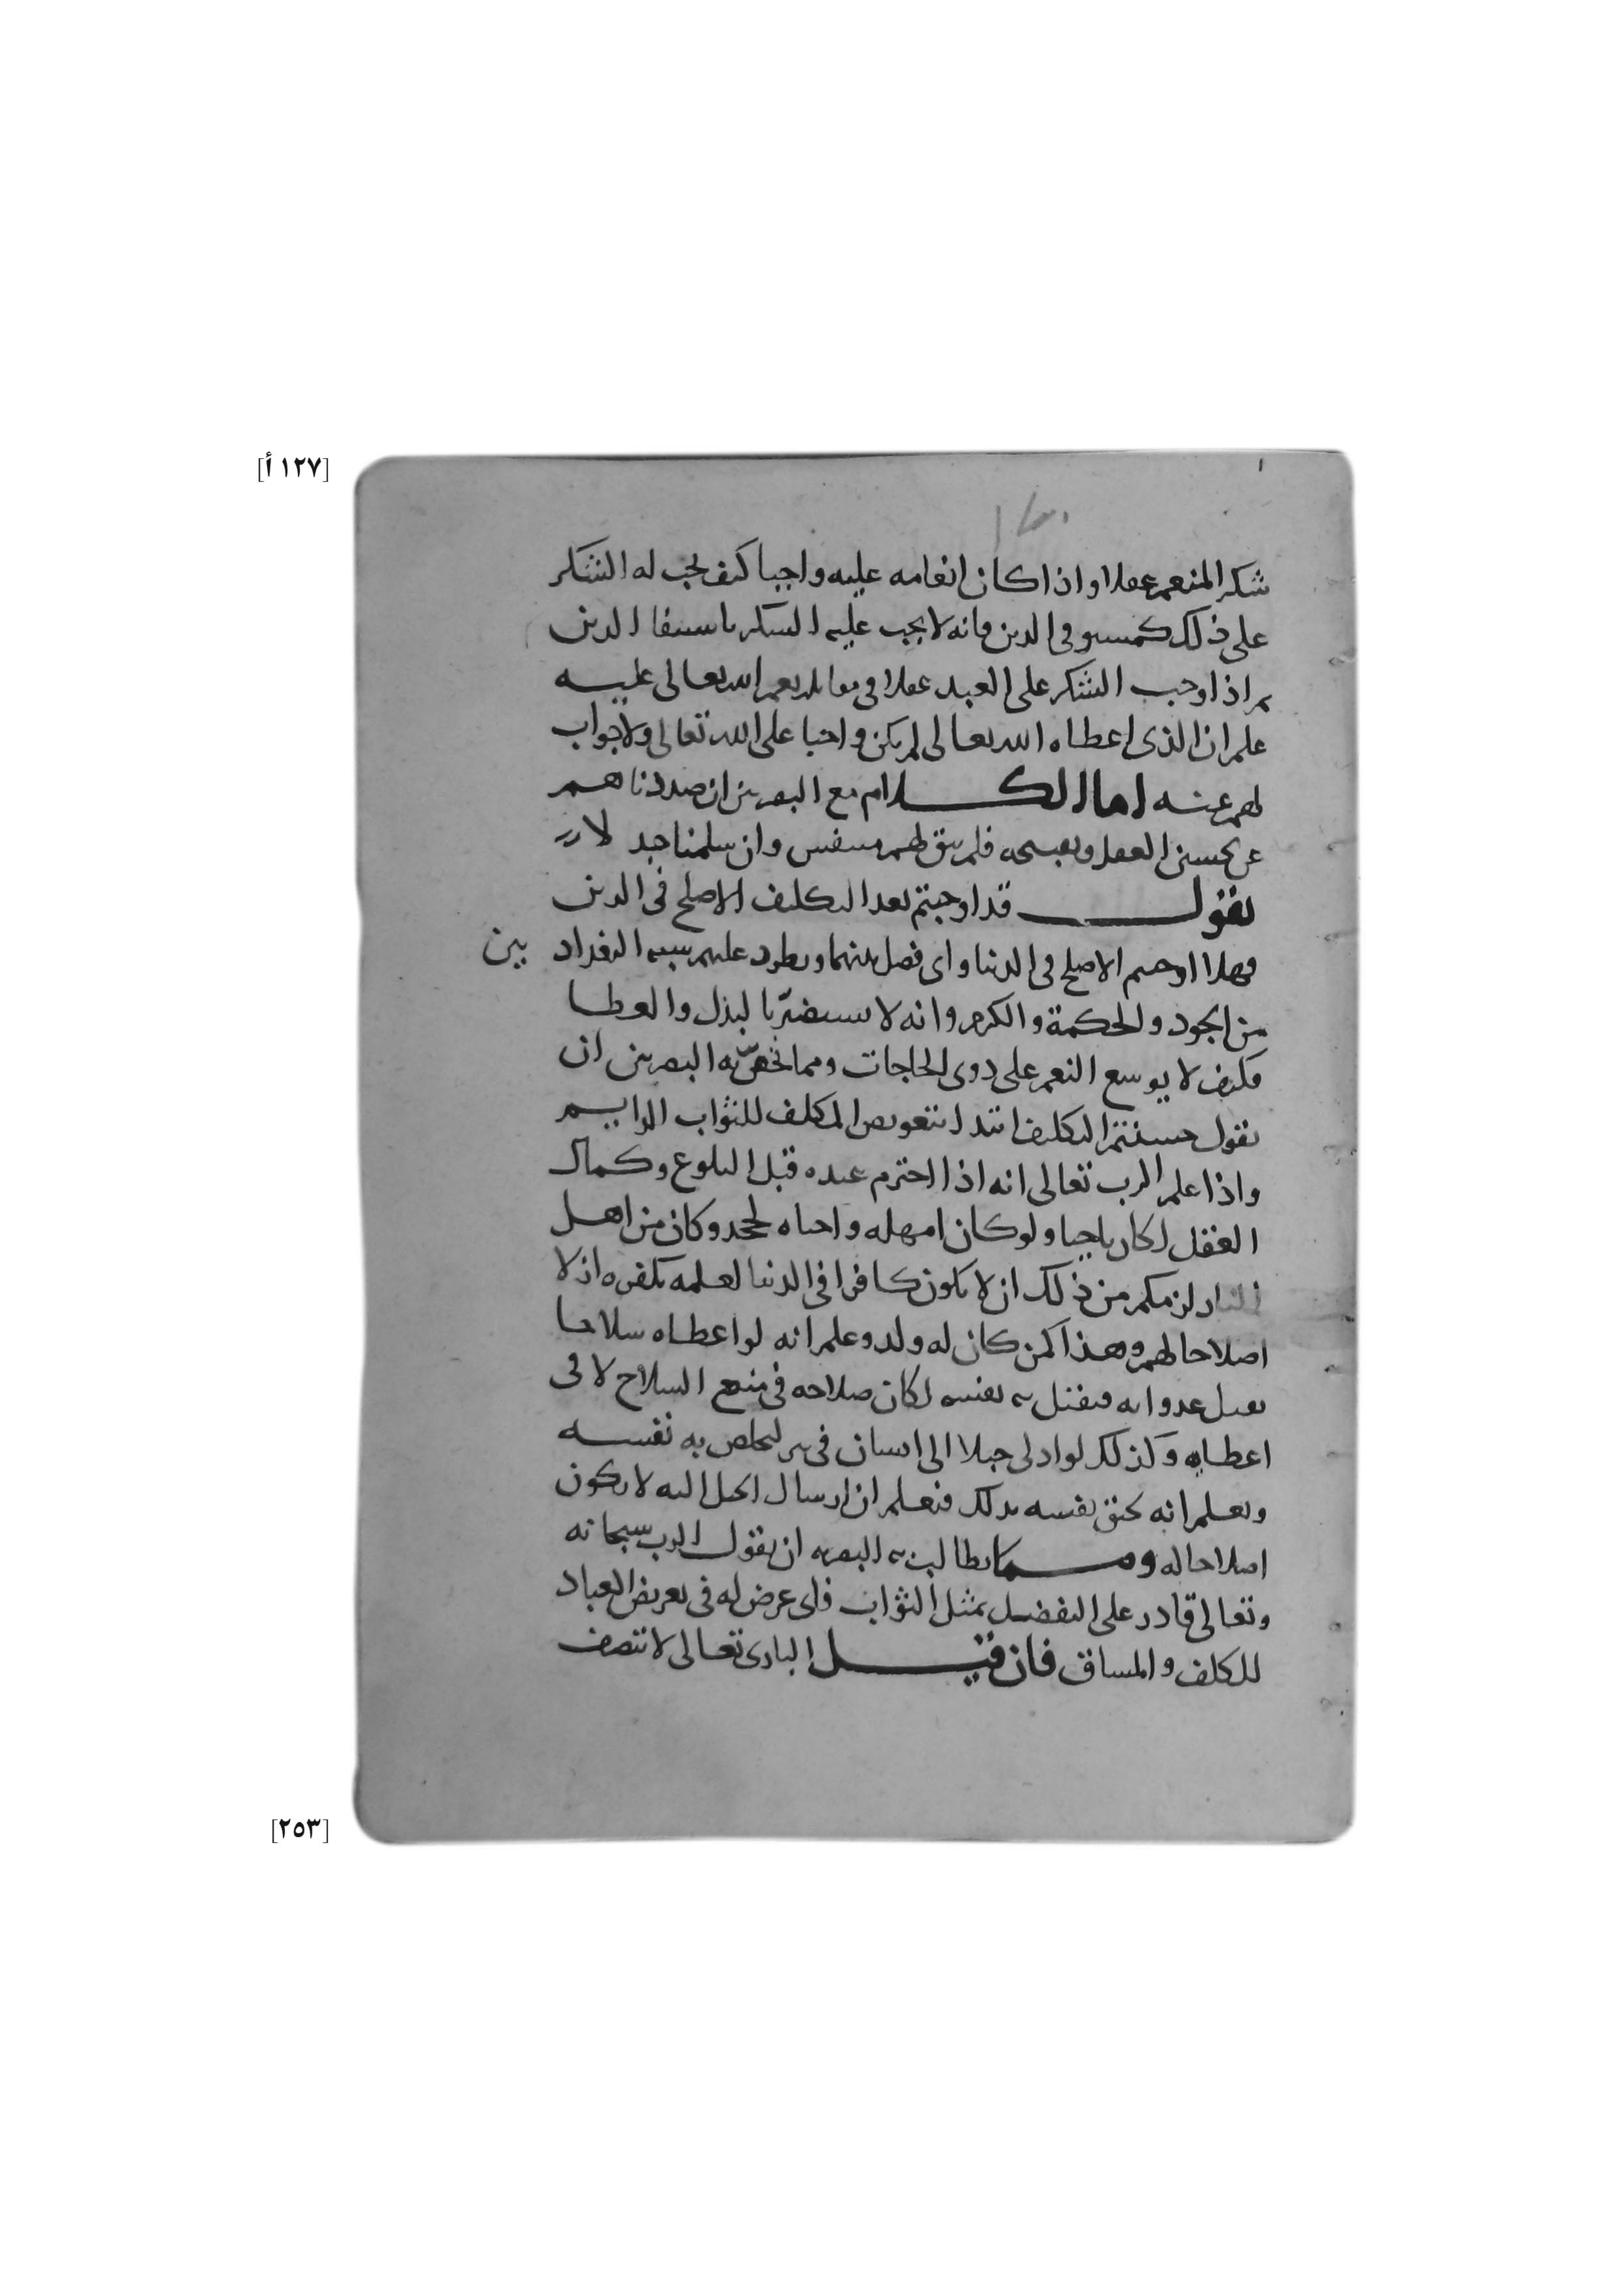 [١٢٧ أ]
شكر المنعم عقلا واذا كان انعامه عليه واجبا كيف يجب له الشكر
على ذلك كمستوفى الدين فانه لا يجب عليه الشكر باستيفا الدين
ثم اذا وجب الشكر على العبد عقلا في مقابلة نعم الله تعالى عليه
علم ان الذى اعطاه الله تعالى لم يكن واجبا على الله تعالى ولا جواب
لهم عنه اما الكلام مع البصريين ان صددناهم
عن تحسين العقل وتقبيحه فلم يبق لهم متنفس وان سلمنا جدلا
نقول قد اوجبتم بعد التكليف الاصلح في الدين
فهلا اوجبتم الاصلح في الدنيا واى فصل بينهما ويطرد عليهم شبه البغداديين
من الجود والحكمة والكرم وانه لا يستضرّ بالبذل والعطا
فكيف لا يوسع النعم على ذوى الحاجات ومما نخصّ به البصريين ان
نقول حسنتم التكليف ابتدا لتعويض المكلف للثواب الدايم
واذا علم الرب تعالى انه اذا اخترم عبده قبل البلوغ وكمال
العقل لكان ناجيا ولو كان امهله واحياه لجحد وكان من اهل
النار لزمكم من ذلك ان لا يكون كافرا في الدنيا لعلمه بكفره اذ لا
اصلاحا لهم وهذا كمن كان له ولد وعلم انه لو اعطاه سلاحا
يقتل عدوا له فيقتل به نفسه لكان صلاحه في منع السلاح لا في
اعطايه وكذلك لو ادلى حبلا الى انسان في بير ليخلص به نفسه
ويعلم انه يخنق نفسه بذلك فنعلم ان ارسال الحبل اليه لا يكون
اصلاحا له ومما يطالب به البصريه ان نقول الرب سبحانه
وتعالى قادر على التفضل بمثل الثواب فاى غرض له في تعريض العباد
للكلف والمساق فان قيل البارى تعالى لا تتصف
[٢٥٣]